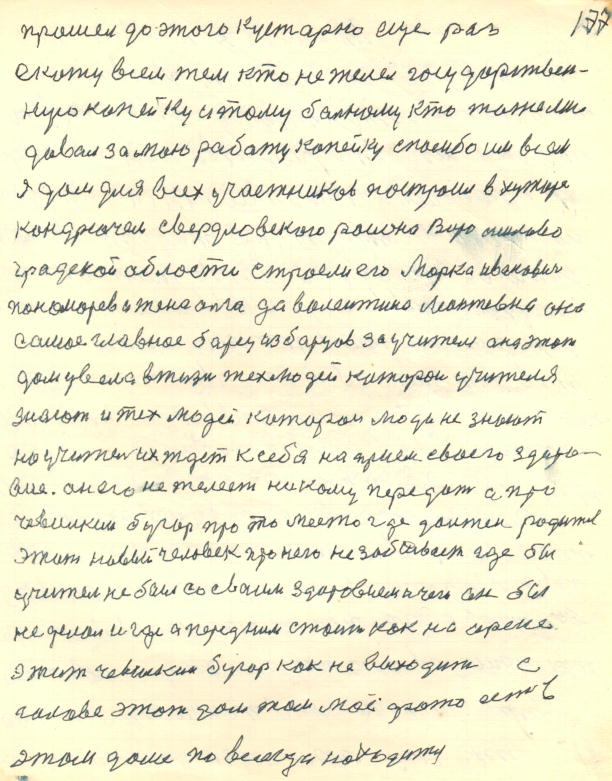 177
прошел до этого кустарно еще раз
скажу всем тем кто не жалел государствен-
ную копейку и тому больному кто тожели
давал за мою работу копейку спасибо им всем
я дом для всех участников построил в хуторе
кондрючем свердловского района Ворошилово
градской области строели его Марка иванович
пономарев и жена олга да волентина Леонтевна она
самое главное барец из барцов за учителя она этот
дом увела в жизн тех людей которои учителя
знают и тех людей которои люди не знают
но учител их ждет к себя на прием своего здоро-
вие. он его не желеет никому передат а про
чевилкин бугор про то место где должен родится
этот новый человек про него не забывает где бы
учител не был со своим здоровием и чего он бы
не делал и где а перед ним стоит как на арене
этит чевилкин бугор как не выходит с
галове этот дом там моё фото есть в
этом доме по всегда находится